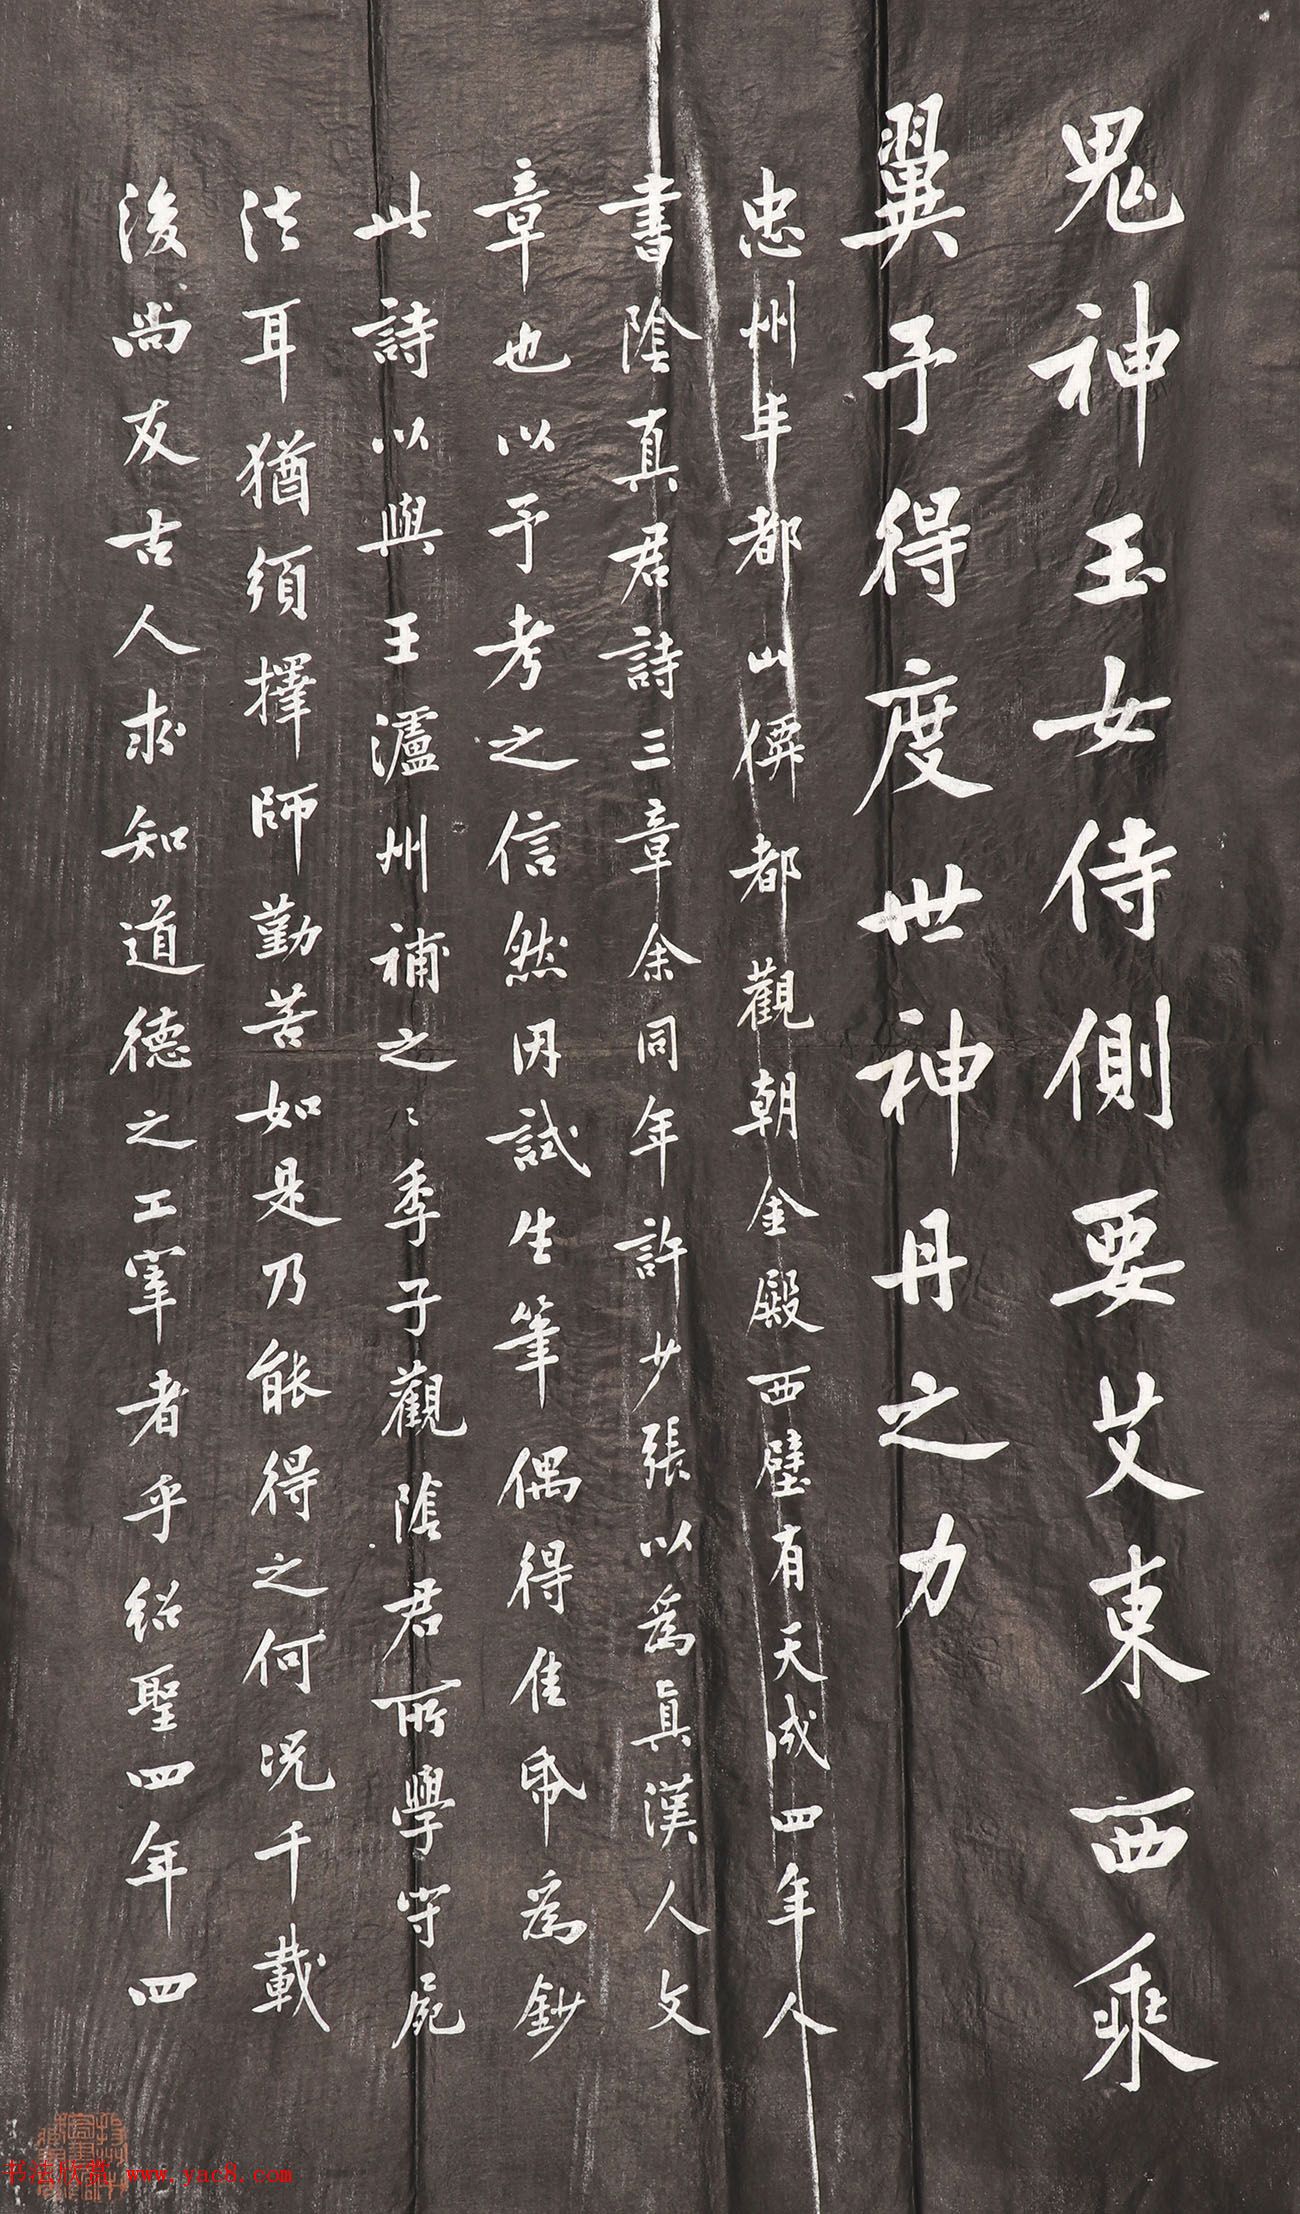 鬼神玉女侍側要艾東西乘
翼予得度世神丹之力
忠州丰都山僊都觀朝金殿西壁有天成四年人
書陰真君詩三章余同年許少張以爲真漢人文
章也以予考之信然因試生筆偶得佳帋爲鈔
此詩以與王瀘州補之〻季子觀陰君所學守屍
法耳猶須擇師勤苦如是乃能得之何況千載
後尚友古人求知道德之工宰者乎紹聖四年四
书法欣赏 www.yac8.com